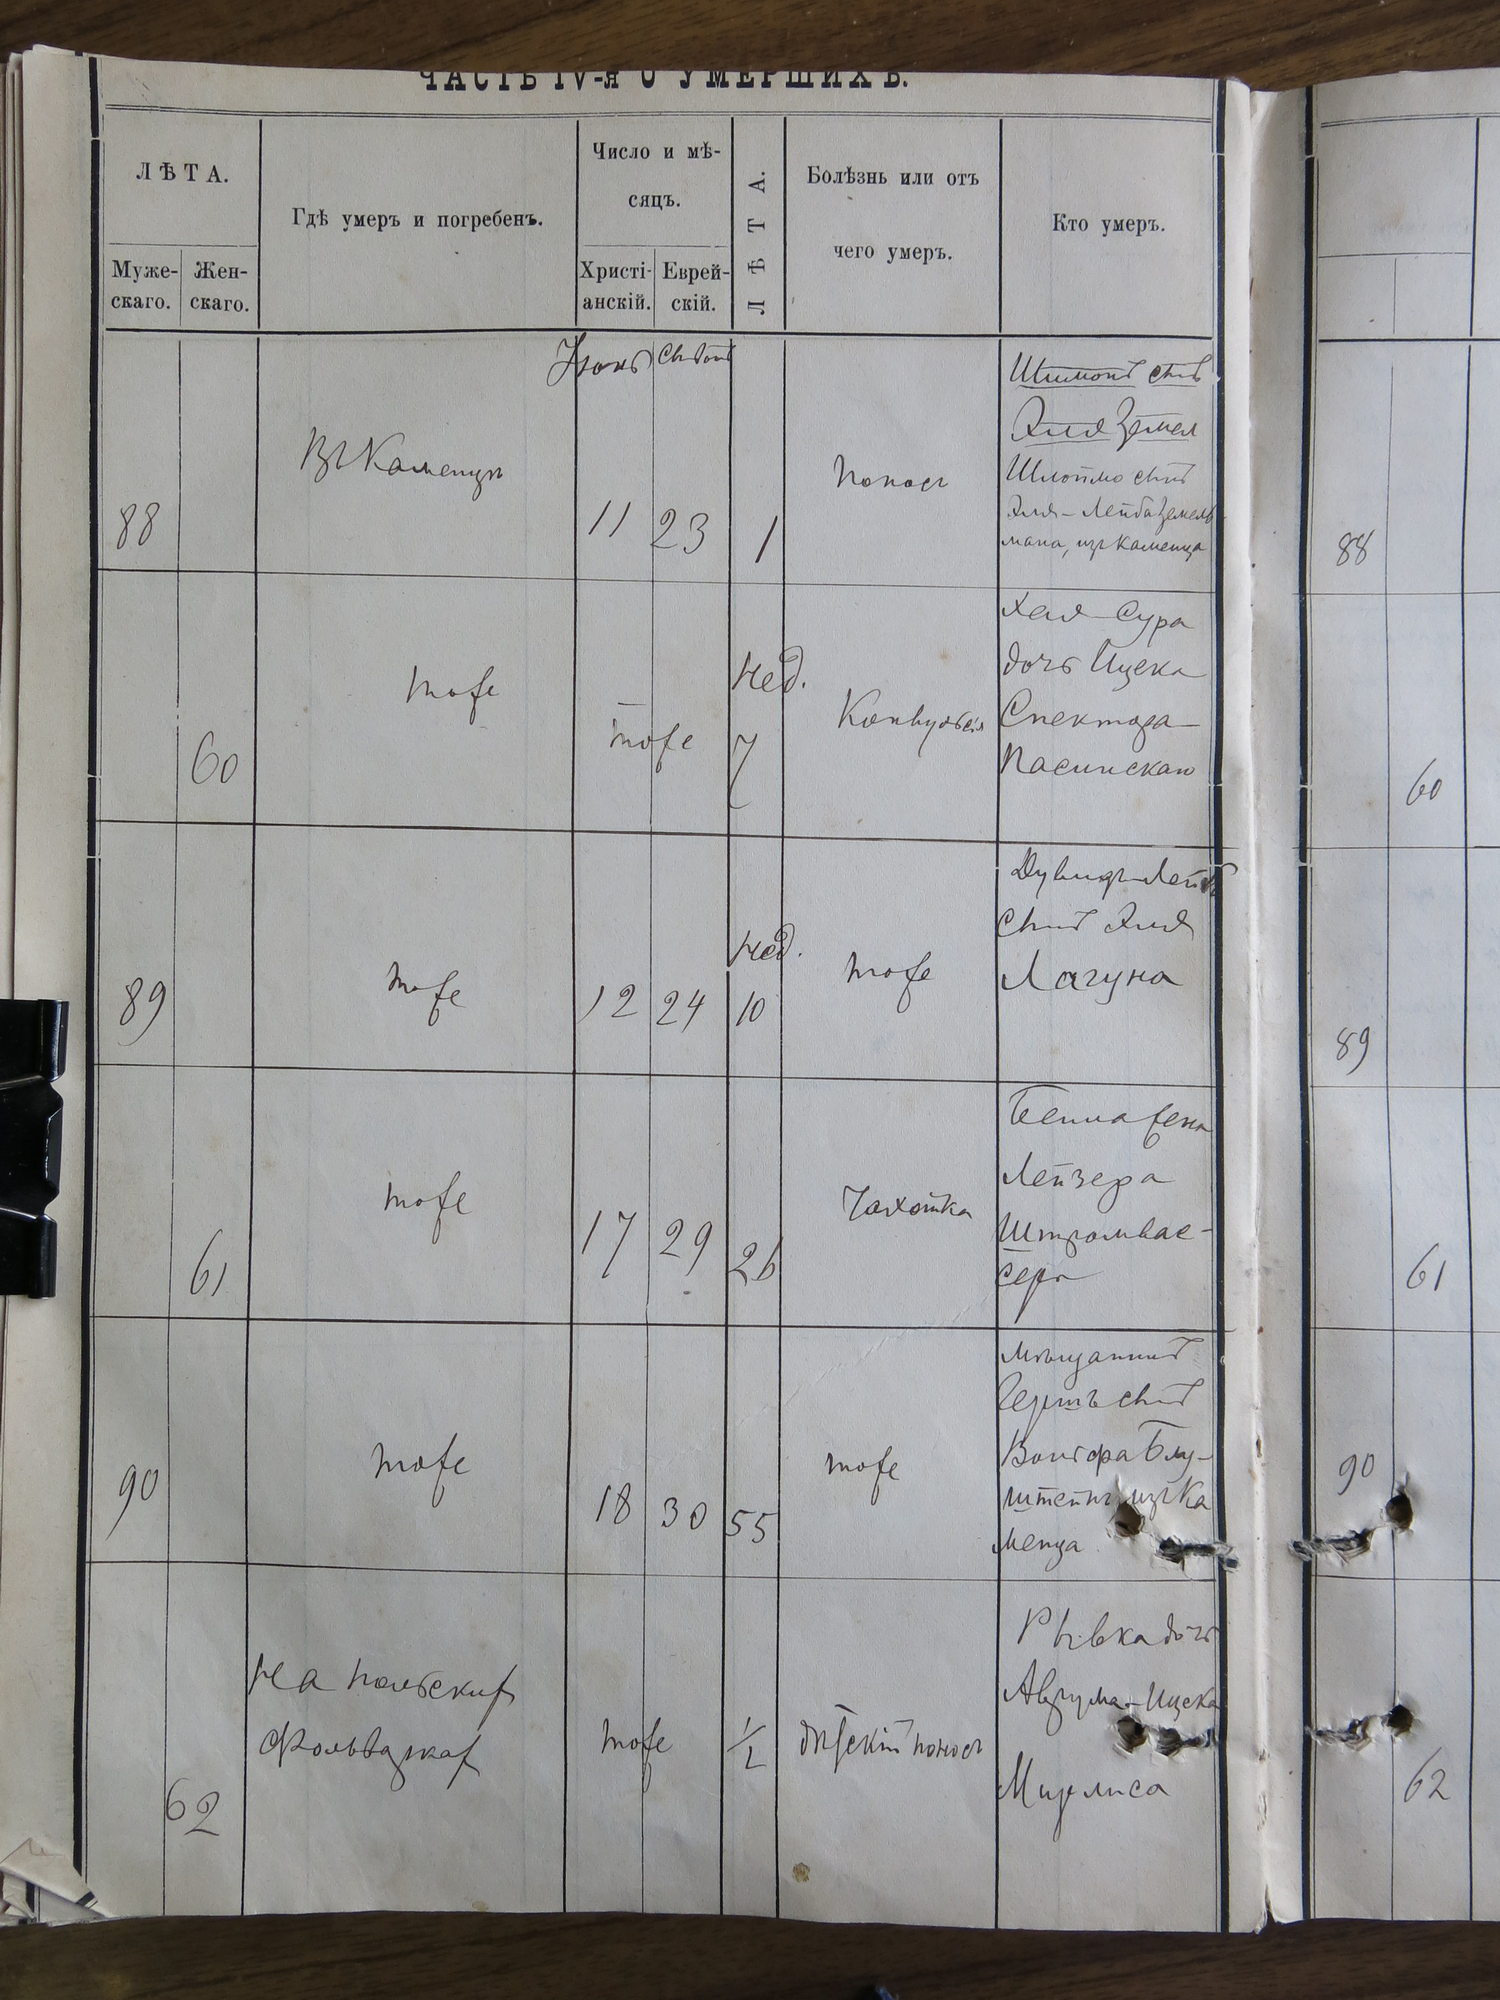 ЧАСТЬ IV-я О УМЕРШИХЪ.
ЛѢТА.
Муже-
скаго.
Жен-
скаго.
Гдѣ умеръ и погребенъ.
Число и мѣ-
сяцъ.
Христі-
анскій.
Еврей-
скій.
ЛѢТА.
Болѣзнь или отъ
чего умеръ.
Кто умеръ.
88
Въ Каменцѣ
Іюнь
11
Сивонъ
23
1
Поносъ
Шимонъ сынъ
Эля Земел
Шлоймо сынъ
Эля-Лейба Земель-
мана, изъ Каменца
60
тоже
тоже
Нед.
7
Конвульсія
Хая-Сура
дочь Ицека
Спектора-
89
тоже
12
24
Нед.
10
тоже
Дувидъ-Лейбъ
сынъ Эля
Лагуна
61
тоже
17
29
26
Чахотка
Бейла жена
Лейзера
Штромвас-
сера
90
тоже
18
30
55
тоже
мѣщанинъ
Гершъ сынъ
Вольфа Блу-
штейнъ изъ Ка
менца
62
На польскихъ
фольваркахъ
тоже
1/2
дѣтскій поносъ
Рывка дочь
Аврума-Ицека
88
60
89
61
90
62